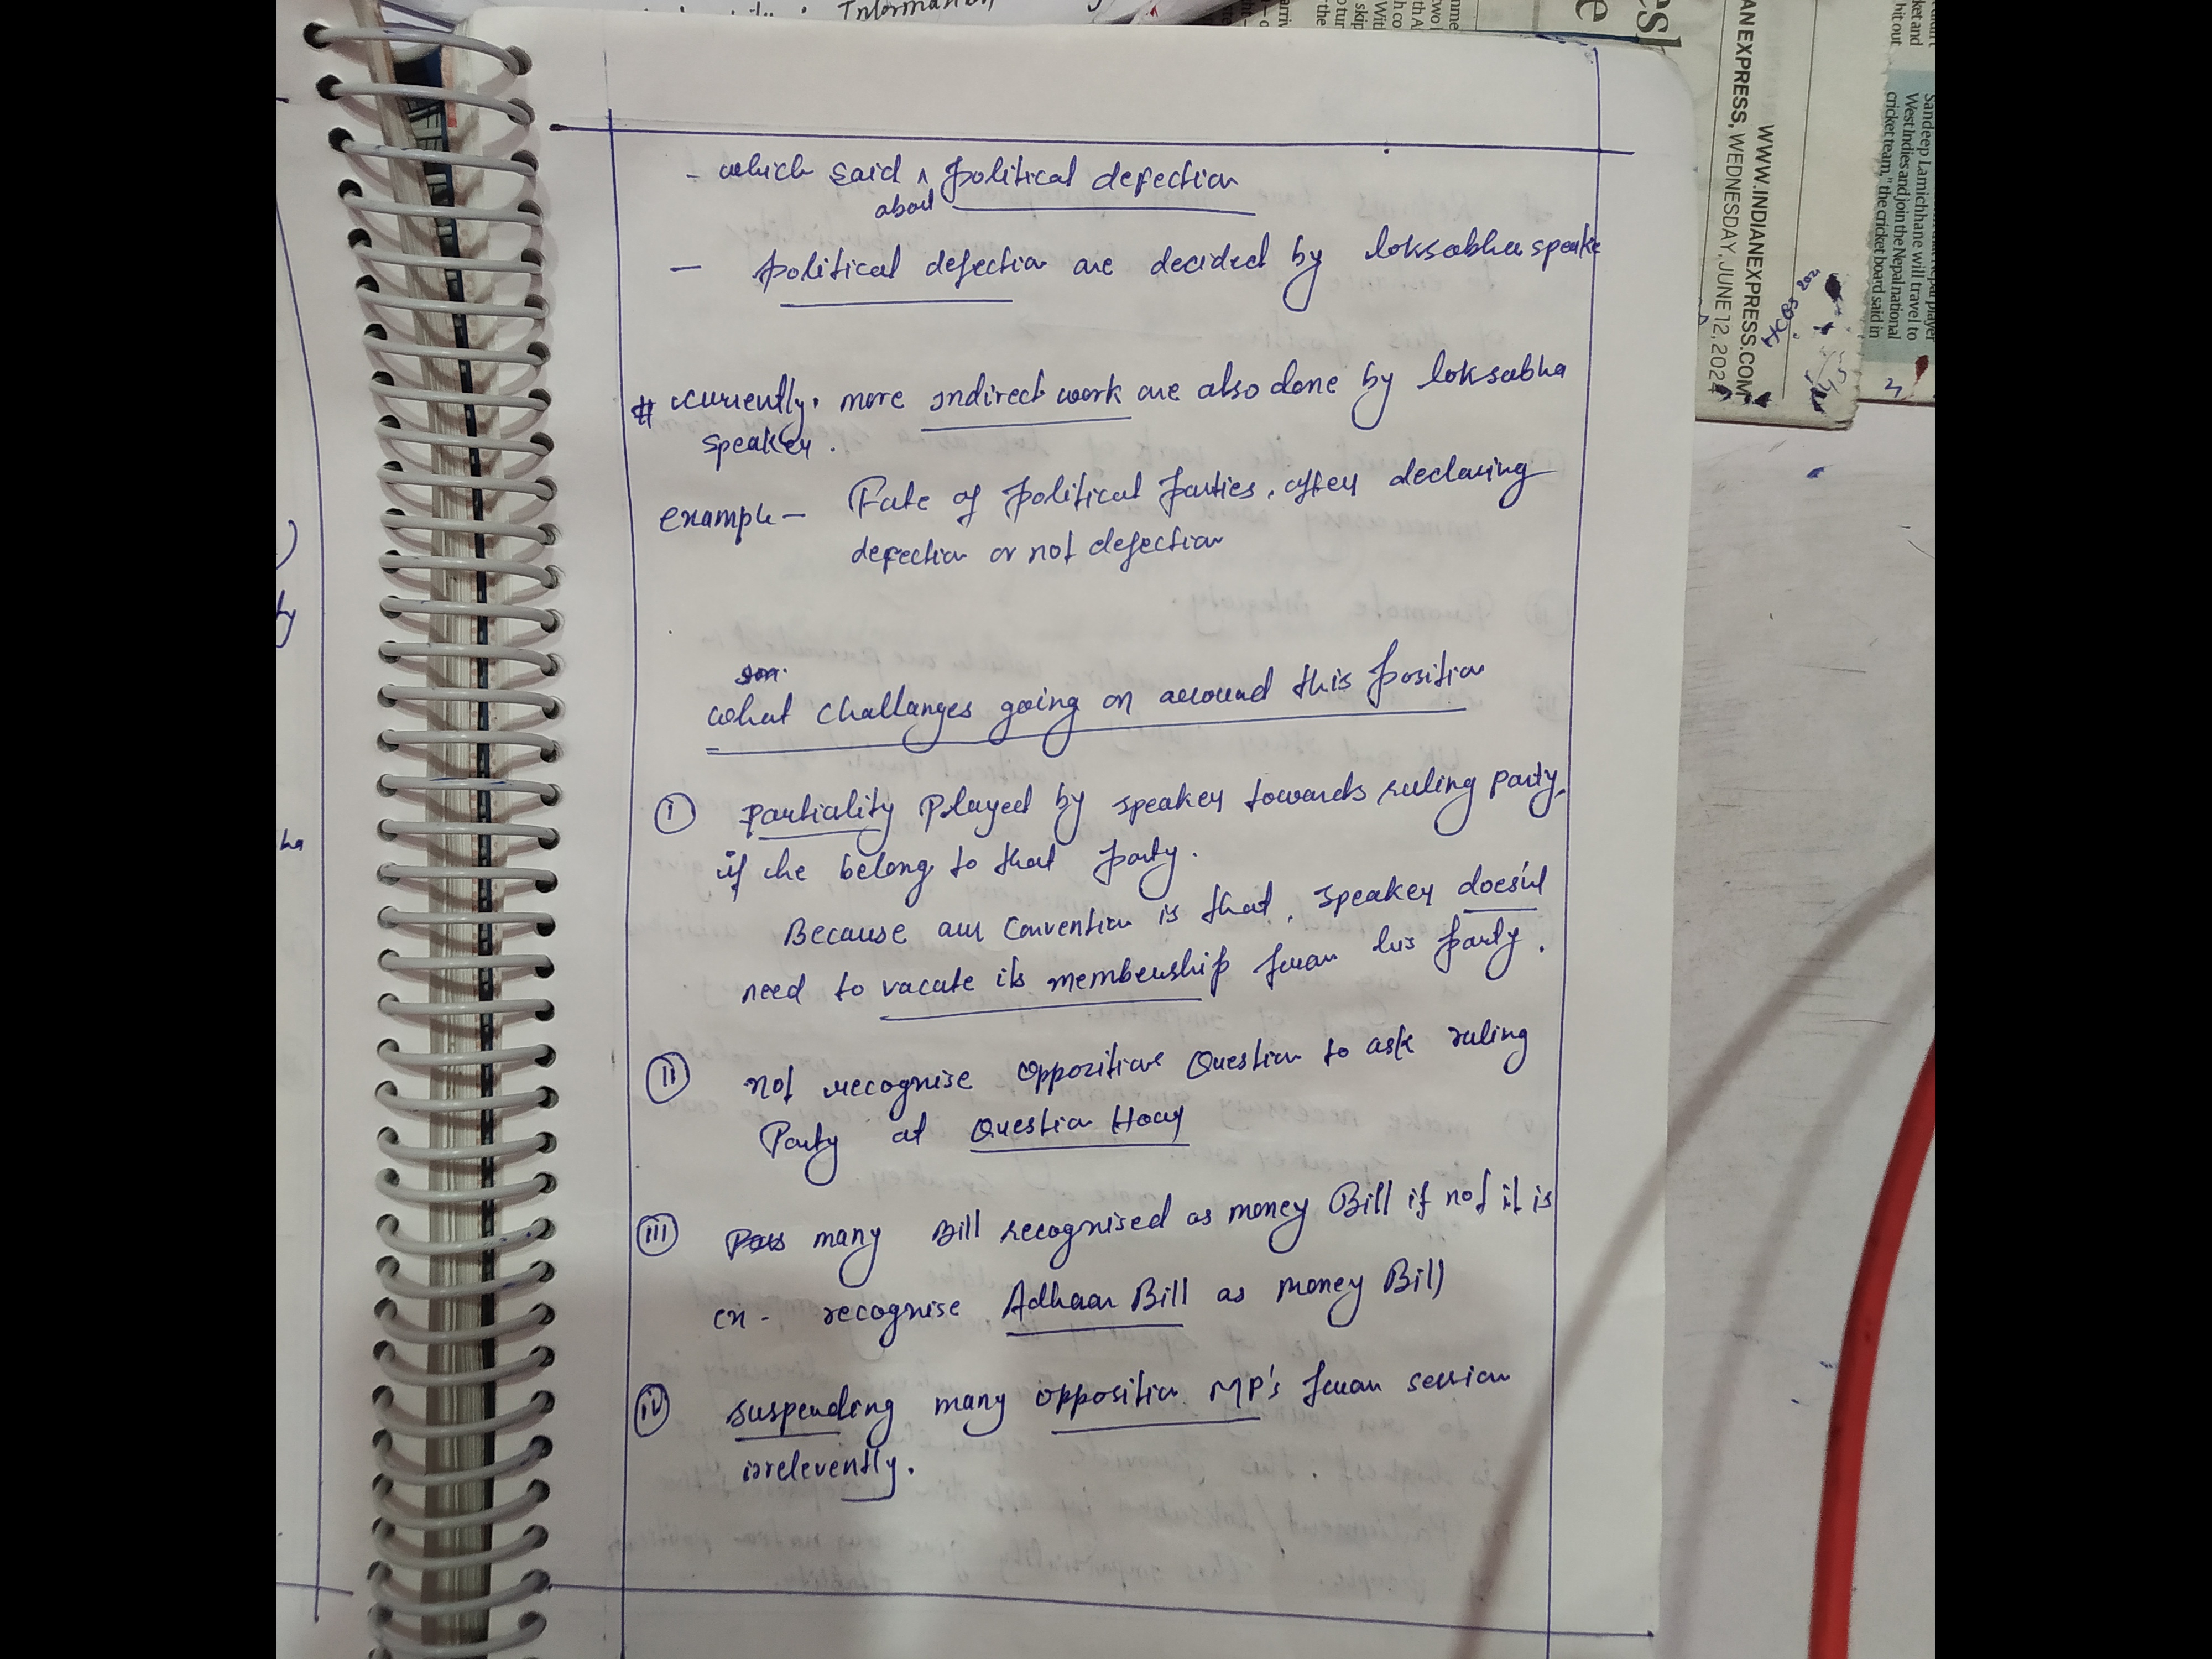 Information
- which said ^ political defection
about
- political defection are decided by loksabha speake
# currently. more indirect work are also done by loksabha
speaker.
example - Fate of political parties, after declaring
defection or not defection
what challanges going on around this position
(i) Partiality played by speaker towards ruling party,
if he belong to that party.
Because our convention is that, speaker does'nt
need to vacate its membership from his party.
(ii) not recognise oppozition Question to ask ruling
Party at Question Hour
(iii) Pass many Bill recognised as money Bill if not it is
ex - recognise Adhaar Bill as money Bill
(iv) suspending many opposition MP's from session
irrelevently.
ha
AN EXPRESS, WEDNESDAY, JUNE 12, 2024
WWW.INDIANEXPRESS.COM
Sandeep Lamichhane will travel to
West Indies and join the Nepal national
cricket team," the cricket board said in
ket and
hit out